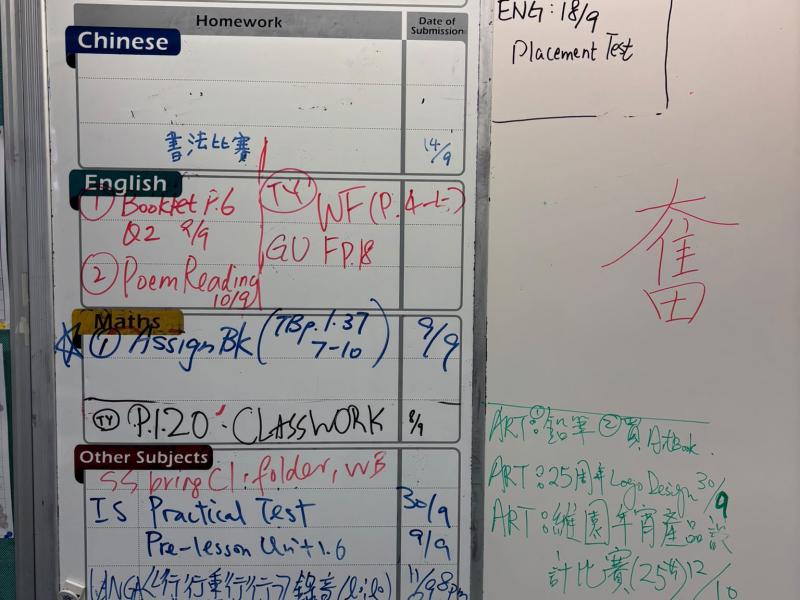 Homework
Date of Submission
Chinese
書法比賽 14/9
English
① Booklet P.6
Q2 9/9
② Poem Reading
10/9
TY WF (P.4-5)
GU F P.18
Maths
☆ ① Assign Bk (TB p.1.37 9/9
7-10)
TY P.1.20 CLASSWORK 8/9
Other Subjects
SS bring Cl. folder, WB
IS Practical Test 30/9
Pre-lesson Unit 1.6 9/9
錄音 11/9 8pm
ENG: 18/9
Placement Test
奮
ART:①鉛筆②買ArtBook
ART:25周年Logo Design 30/9
ART:維園年宵產品設
計比賽 12/10